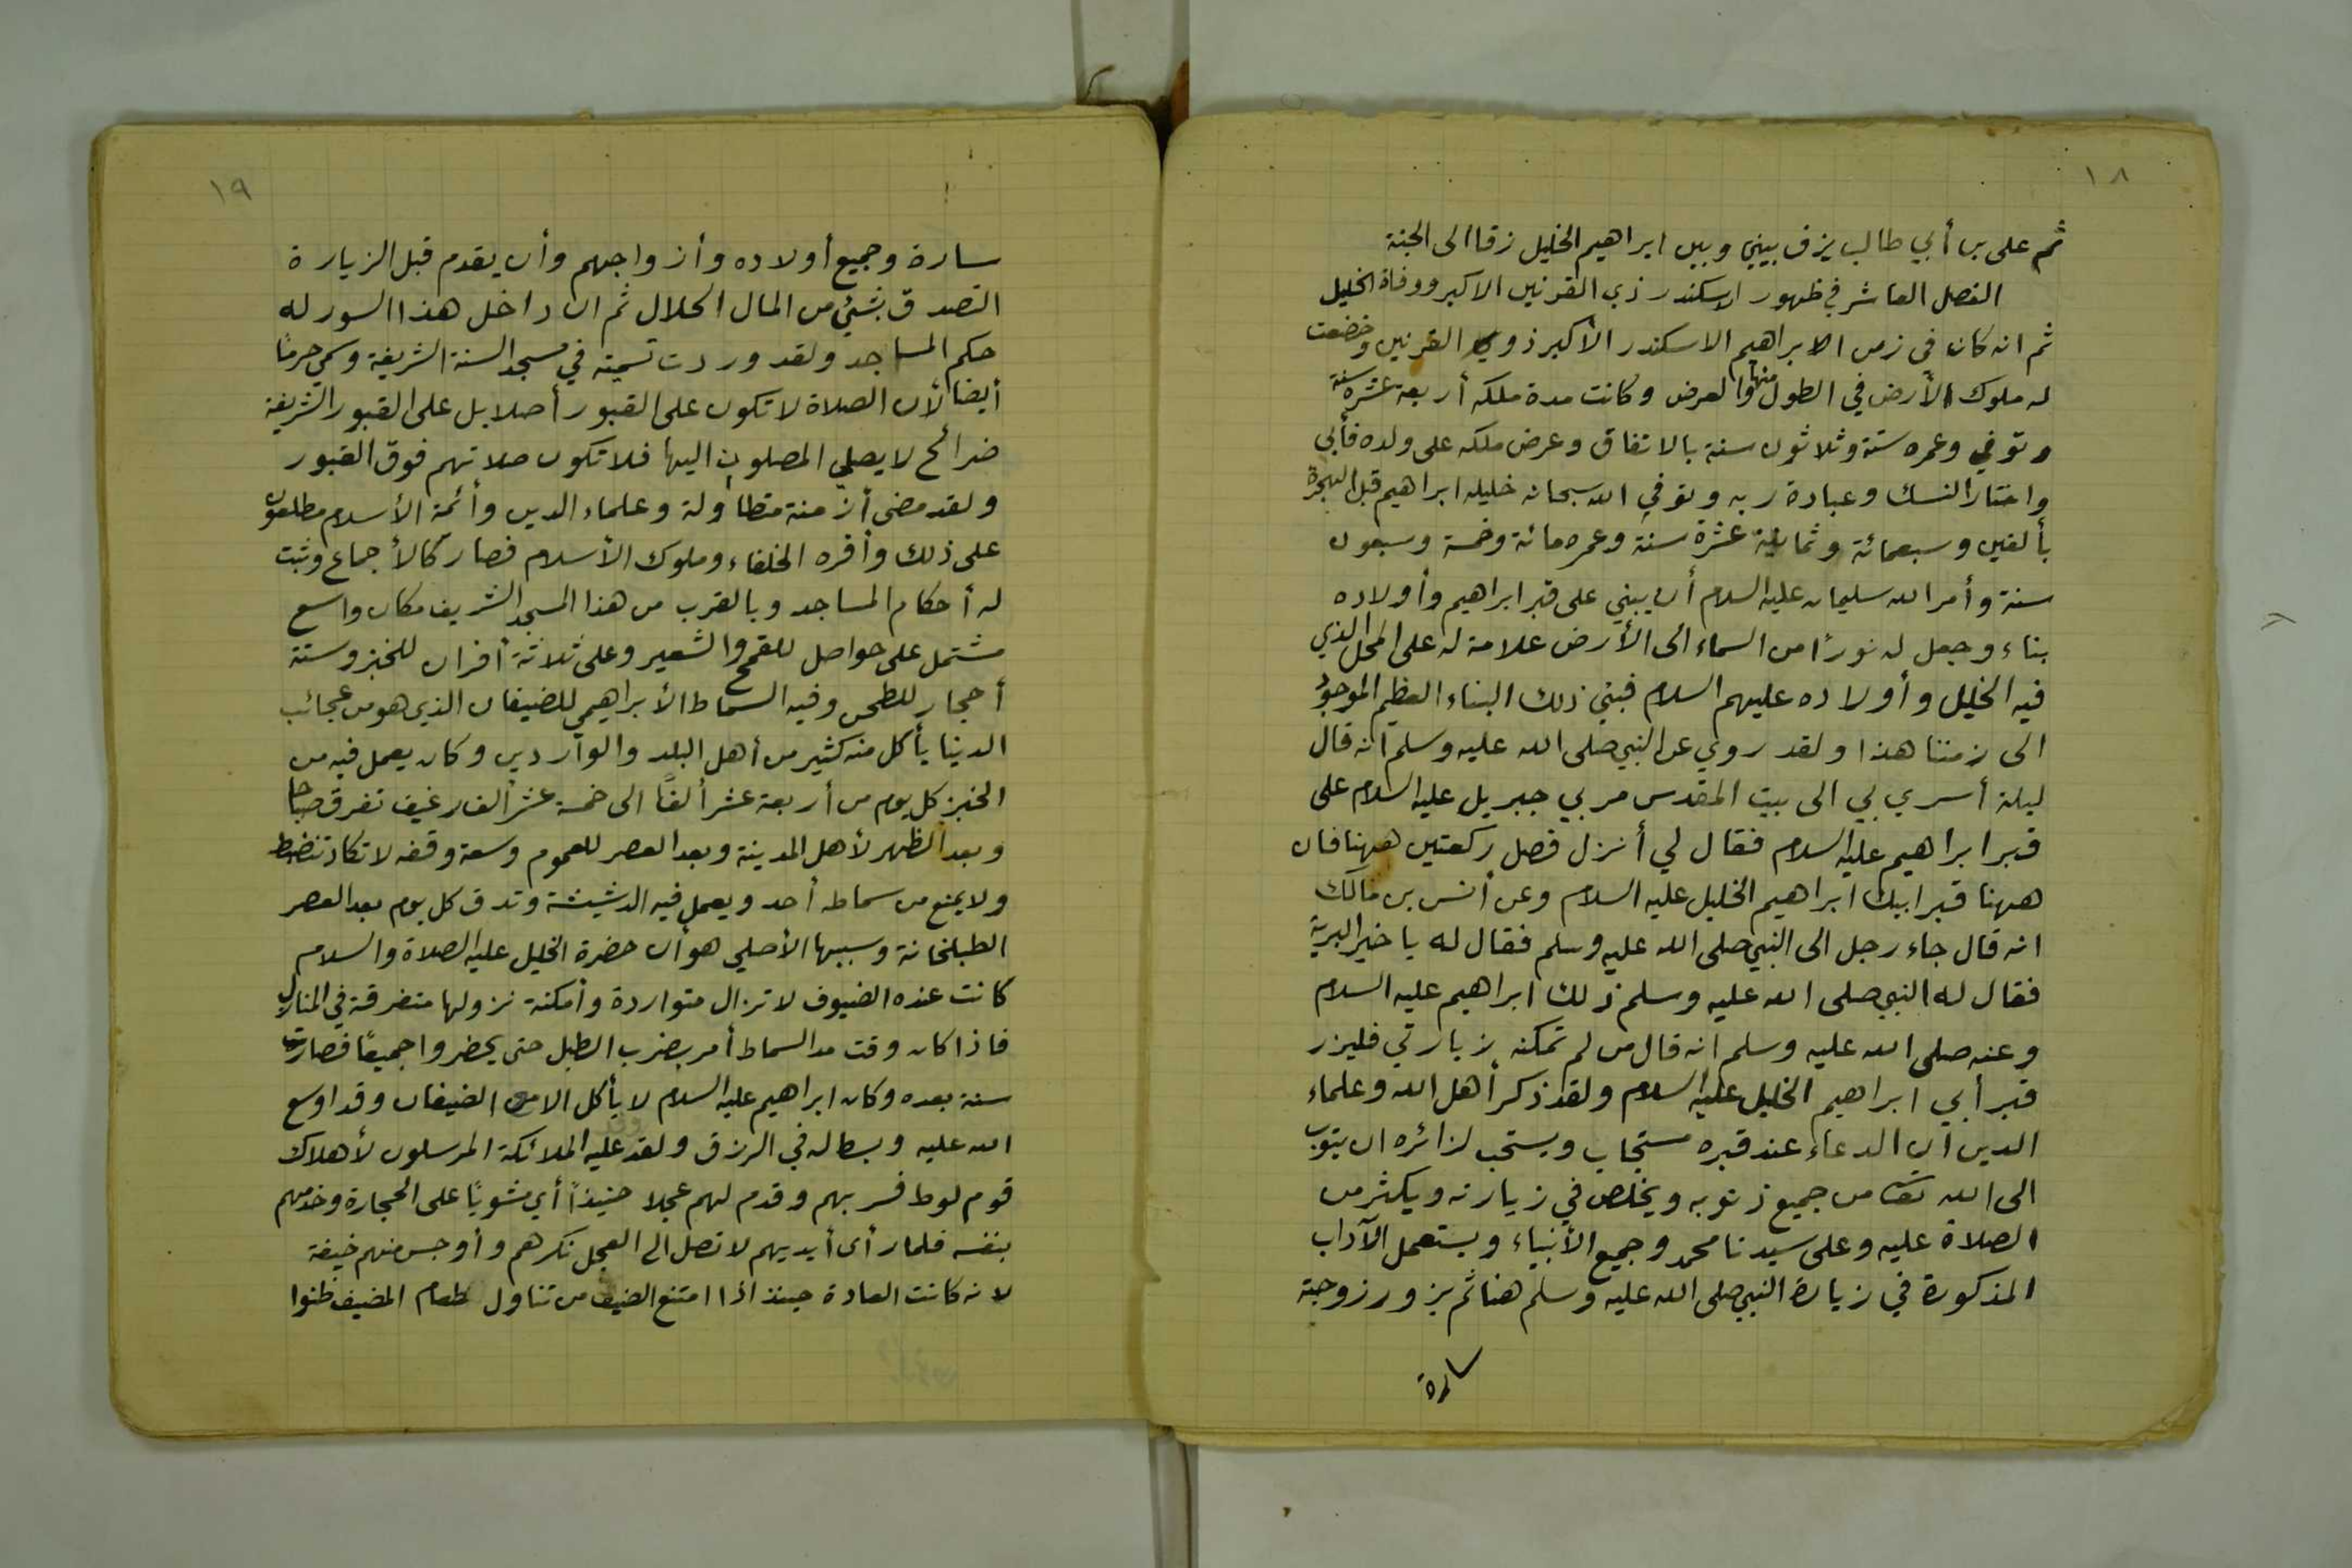 ١٨
ثم على بن أبي طالب يزف بيني وبين ابراهيم الخليل زفا الى الجنة
الفصل العاشر في ظهور الاسكندر ذي القرنين الاكبر ووفاة الخليل
ثم انه كان في زمن الابراهيم الاسكندر الأكبر ذوي القرنين وخضعت
له ملوك الأرض في الطول منها والعرض وكانت مدة ملكه أربعة عشرة سنة
وتوفي وعمره ستة وثلاثون سنة بالاتفاق وعرض ملكه على ولده فأبى
واختار النسك وعبادة ربه وتوفي الله سبحانه خليله ابراهيم قبل الهجرة
بألفين وسبعمائة وثمانية عشرة سنة وعمره مائة وخمسة وسبعون
سنة وأمر الله سليمان عليه السلام أن يبني على قبر ابراهيم وأولاده
بناء وجعل له نورًا من السماء الى الأرض علامة له على المحل الذي
فيه الخليل وأولاده عليهم السلام فبنى ذلك البناء العظيم الموجود
الى زمننا هذا ولقد روي عن النبي صلى الله عليه وسلم انه قال
ليلة أسري بي الى بيت المقدس مر بي جبريل عليه السلام على
قبر ابراهيم عليه السلام فقال لي أنزل فصل ركعتين ههنا فان
ههنا قبر ابيك ابراهيم الخليل عليه السلام وعن أنس بن مالك
انه قال جاء رجل الى النبي صلى الله عليه وسلم فقال له يا خير البرية
فقال له النبي صلى الله عليه وسلم ذلك ابراهيم عليه السلام
وعنه صلى الله عليه وسلم انه قال من لم تمكنه زيارتي فليزر
قبر أبي ابراهيم الخليل عليه السلام ولقد ذكر أهل الله وعلماء
الدين ان الدعاء عند قبره مستجاب ويستحب لزائره ان يتوب
الى الله تعا من جميع ذنوبه ويخلص في زيارته ويكثر من
الصلاة عليه وعلى سيدنا محمد وجميع الأنبياء ويستعمل الآداب
المذكورة في زيارة النبي صلى الله عليه وسلم هنا ثم يزور زوجته
سارة
١٩
سارة وجميع أولاده وأزواجهم وأن يقدم قبل الزيارة
التصدق بشيء من المال الحلال ثم ان داخل هذا السور له
حكم المساجد ولقد وردت تسميته في مسجد السنة الشريفة وسمي حرمًا
أيضا لأن الصلاة لا تكون على القبور أصلا بل على القبور الشريفة
ضرائح لا يصلي المصلون اليها فلا تكون صلاتهم فوق القبور
ولقد مضى أزمنة متطاولة وعلماء الدين وأئمة الأسلام مطلعون
على ذلك وأقره الخلفاء وملوك الأسلام فصار كالأجماع وثبت
له أحكام المساجد وبالقرب من هذا المسجد الشريف مكان واسع
مشتمل على حواصل للقمح والشعير وعلى ثلاثة أفران للخبز وستة
أحجار للطحن وفيه السماط الأبراهيمي للضيفان الذي هو من عجائب
الدنيا يأكل منه كثير من أهل البلد والواردين وكان يعمل فيه من
الخبز كل يوم من أربعة عشر ألفًا الى خمسة عشر ألف رغيف تفرق صباحا
وبعد الظهر لأهل المدينة وبعد العصر للعموم وسعة وقفه لا تكاد تنضبط
ولا يمنع من سماطه أحد ويعمل فيه الدشيشة وتدق كل يوم بعد العصر
الطبلخانة وسببها الأصلي هو أن حضرة الخليل عليه الصلاة والسلام
كانت عنده الضيوف لا تزال متواردة وأمكنة نزولها متفرقة في المنازل
فاذا كان وقت مد السماط أمر بضرب الطبل حتى يحضروا جميعًا فصارت
سنة بعده وكان ابراهيم عليه السلام لا يأكل الا مع الضيفان وقد اوسع
الله عليه وبسط له في الرزق ولقد عليه الملائكة المرسلون لأهلاك
قوم لوط فسر بهم وقدم لهم عجلا حنيذاً أي مشويًا على الحجارة وخدمهم
بنفسه فلما رأى أيديهم لا تصل الى العجل نكرهم وأوجس منهم خيفة
لانه كانت العادة حينئذ اذا امتنع الضيف من تناول طعام المضيف ظنوا